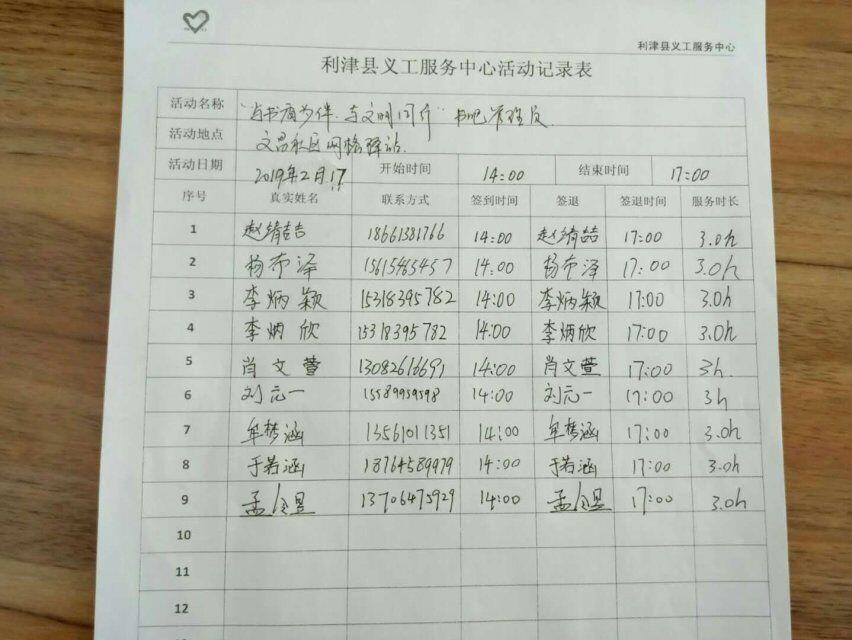 利津县义工服务中心
利津县义工服务中心活动记录表
活动名称 "与书香为伴·与文明同行" 书吧管理员
活动地点 文昌社区网格驿站
活动日期 2019年2月17 开始时间 14:00 结束时间 17:00
序号 真实姓名 联系方式 签到时间 签退 签退时间 服务时长
1 赵靖喆 18661381766 14:00 赵靖喆 17:00 3.0h
2 杨布泽 15615465457 14:00 杨布泽 17:00 3.0h
3 李炳颖 15318395782 14:00 李炳颖 17:00 3.0h
4 李炳欣 15318395782 14:00 李炳欣 17:00 3.0h
5 肖文萱 13082616691 14:00 肖文萱 17:00 3h.
6 刘元一 15589959598 14:00 刘元一 17:00 3h
7 牟梦涵 13561011351 14:00 牟梦涵 17:00 3.0h
8 于若涵 18764589979 14:00 于若涵 17:00 3.0h
9 孟令昱 13706475929 14:00 孟令昱 17:00 3.0h
10
11
12